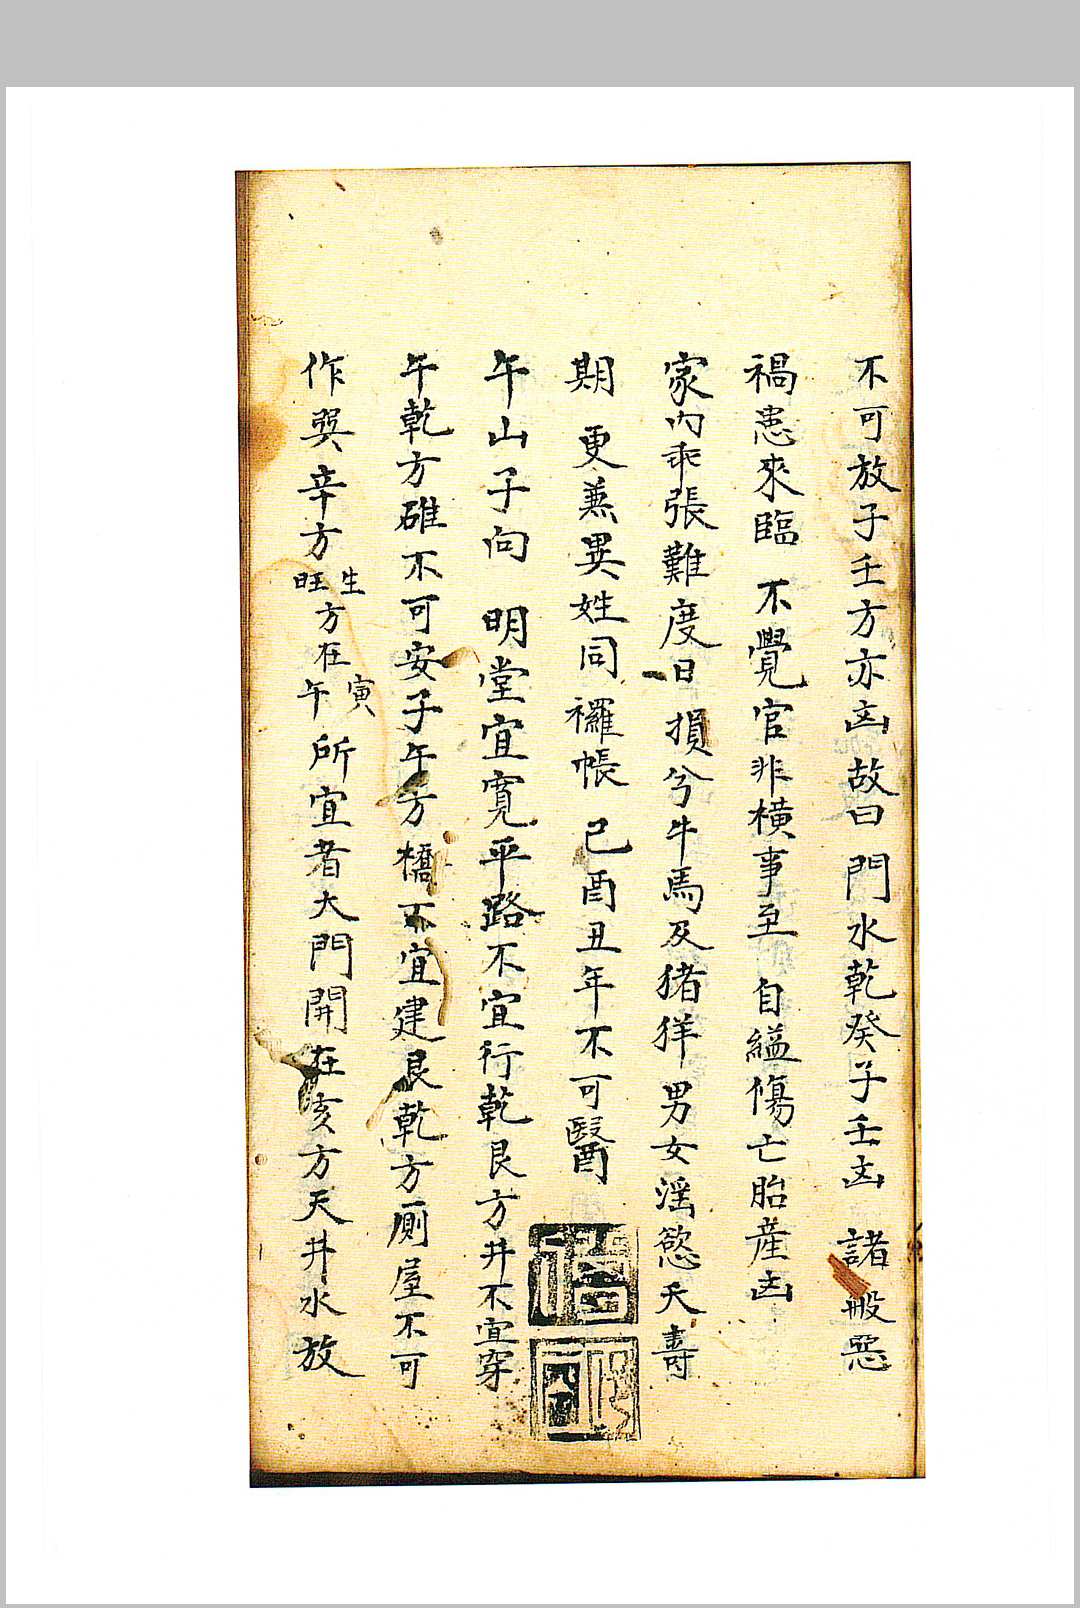 不可放子壬方亦凶故曰門水乾癸子壬凶 諸般惡
禍患來臨 不覺官非橫事至 自縊傷亡胎産凶
家内乖張難度日 損兮牛馬及猪羊男女淫慾夭壽
期 更兼異姓同襬帳 巳酉丑年不可醫
午山子向 明堂宜寬平路不宜行乾艮方井不宜穿
午乾方碓不可安子午方橋不宜建艮乾方厠屋不可
作巽辛方生旺方在寅午所宜者大門開在亥方天井水放